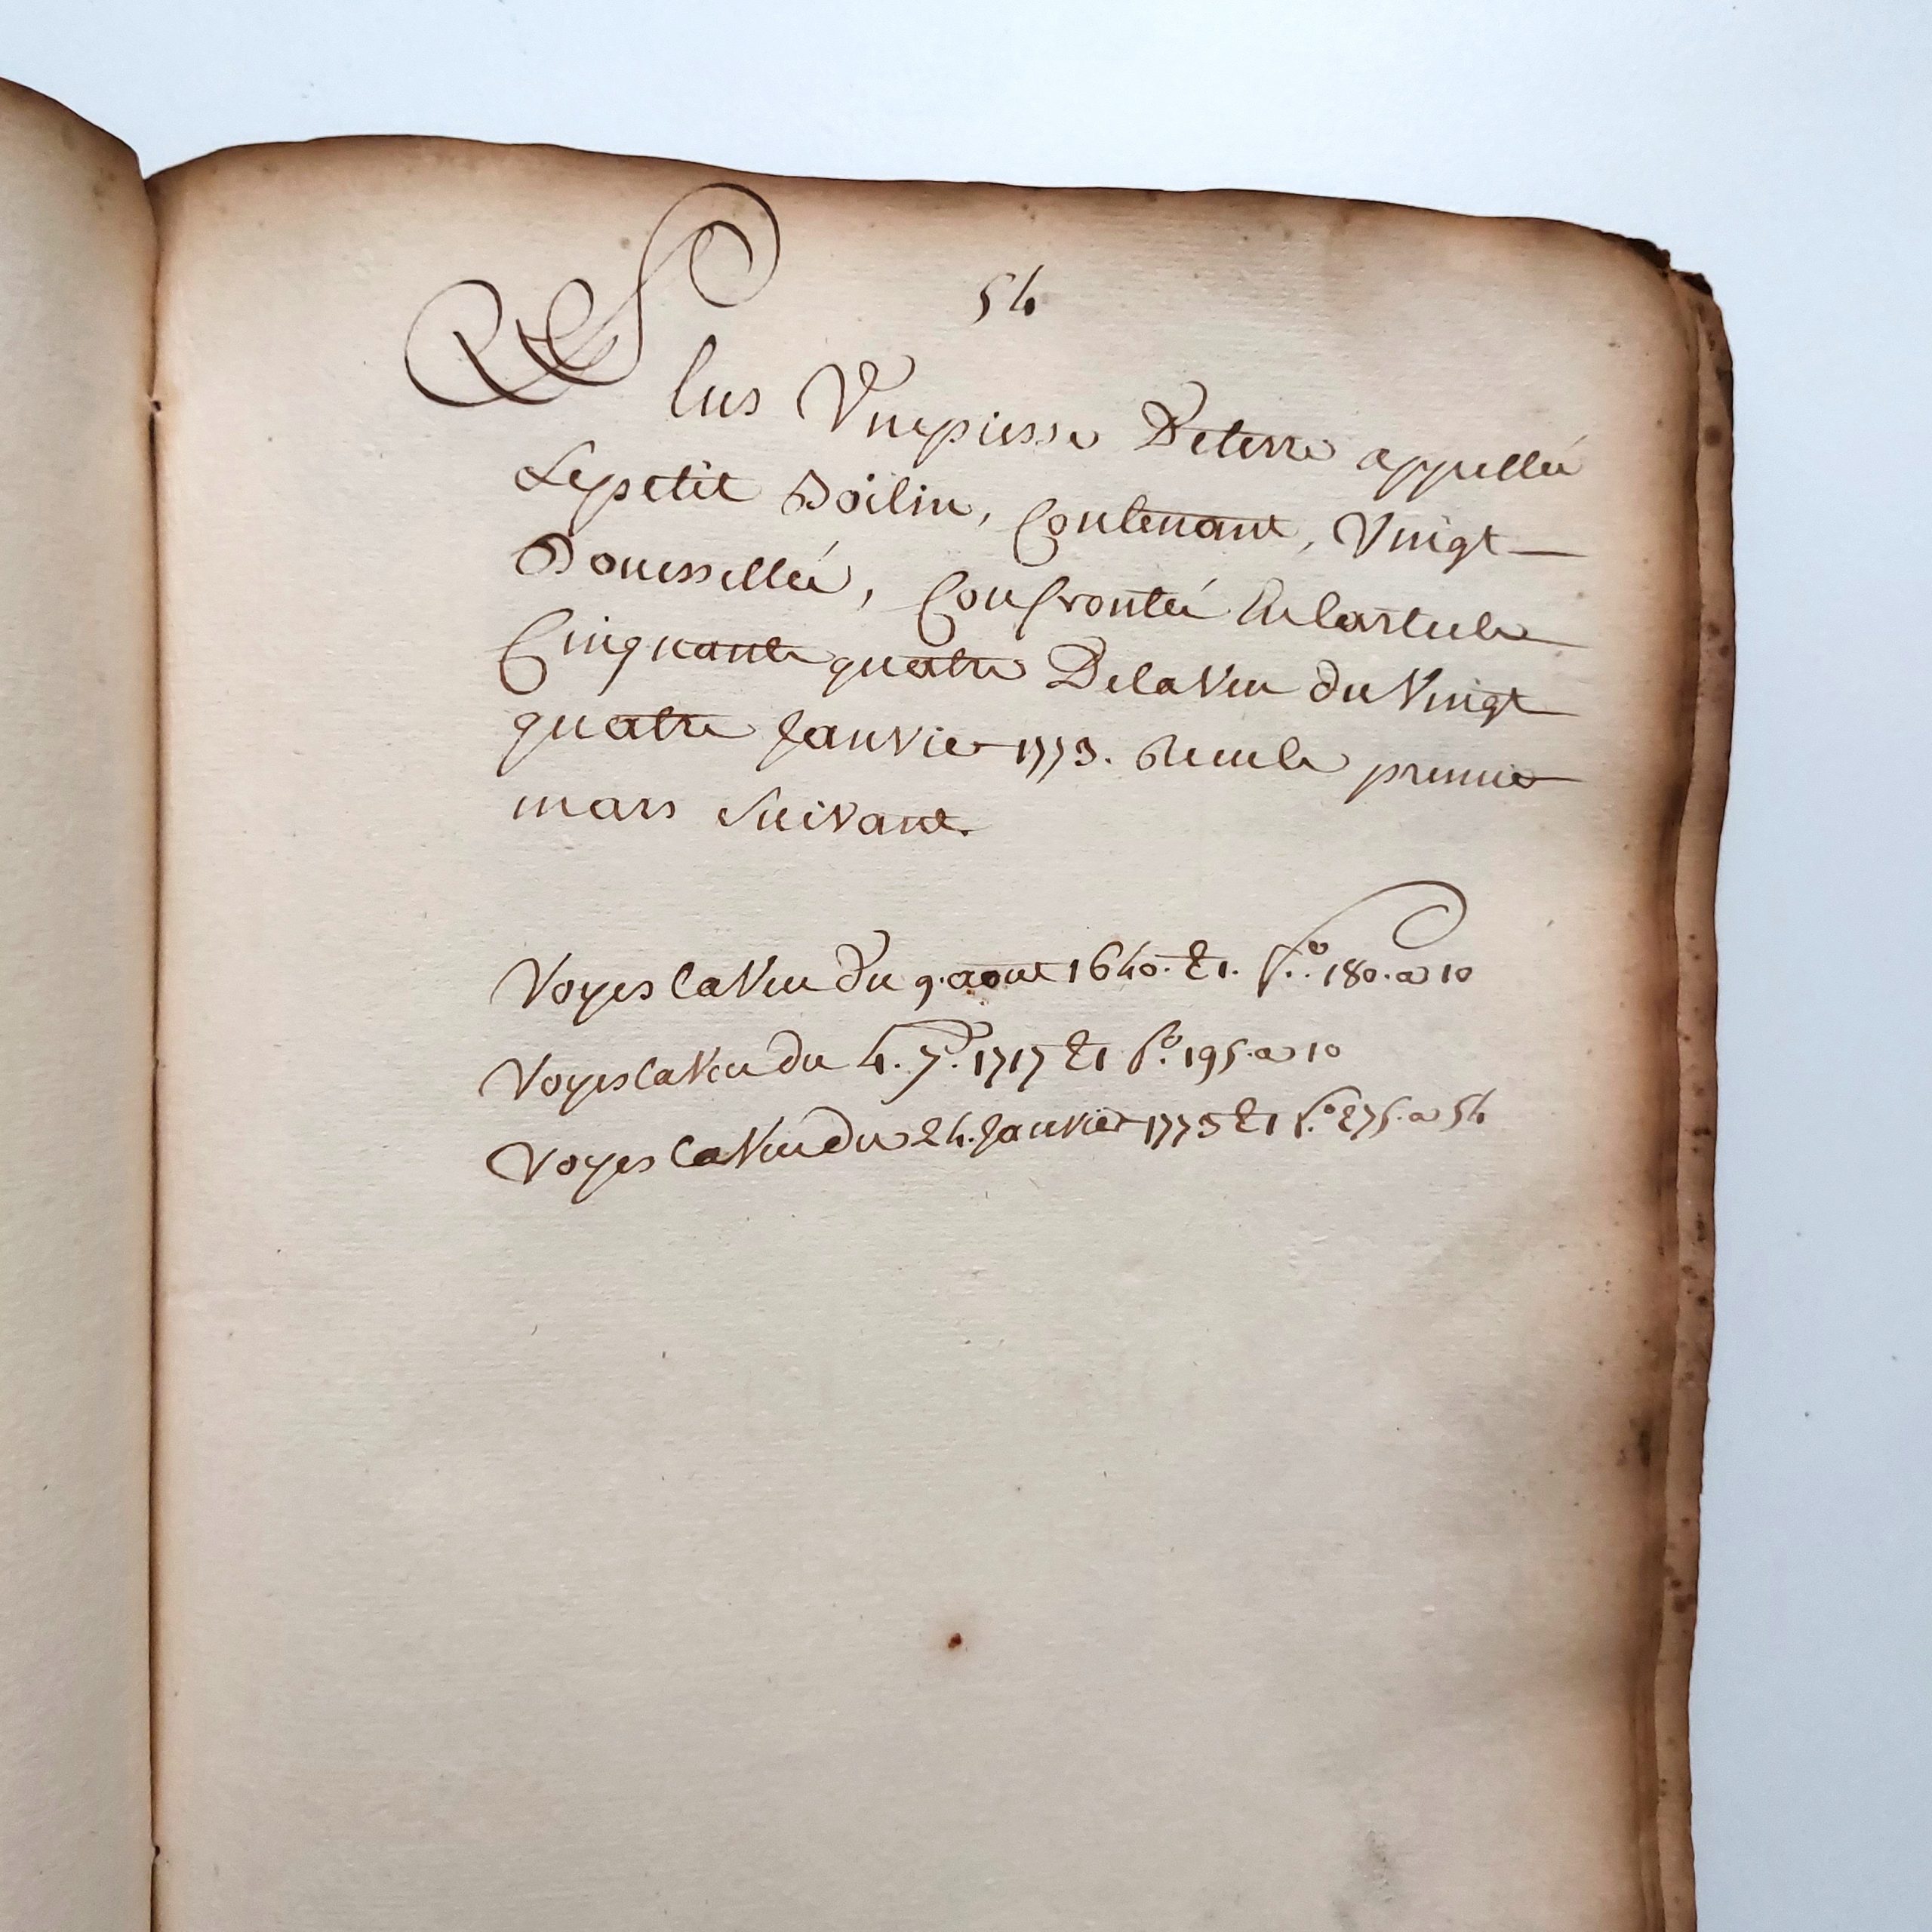 54
Plus Une piesse De terre appellée
Le petit Boilin, Contenant, Vingt
Bouessellée, Confrontée En l'article
Cinquante quatre De la Veue du Vingt
quatre Janvier 1773. Reue le premier
mars Suivant.
Voyes la Veue du 9. aout 1640. Et 1. f.o 180. a 10
Voyes la Veue du 4. 7.b 1717 Et 1 f.o 195. a 10
Voyes la Veue du 24. Janvier 1773 Et 1 f.o 275. a 54